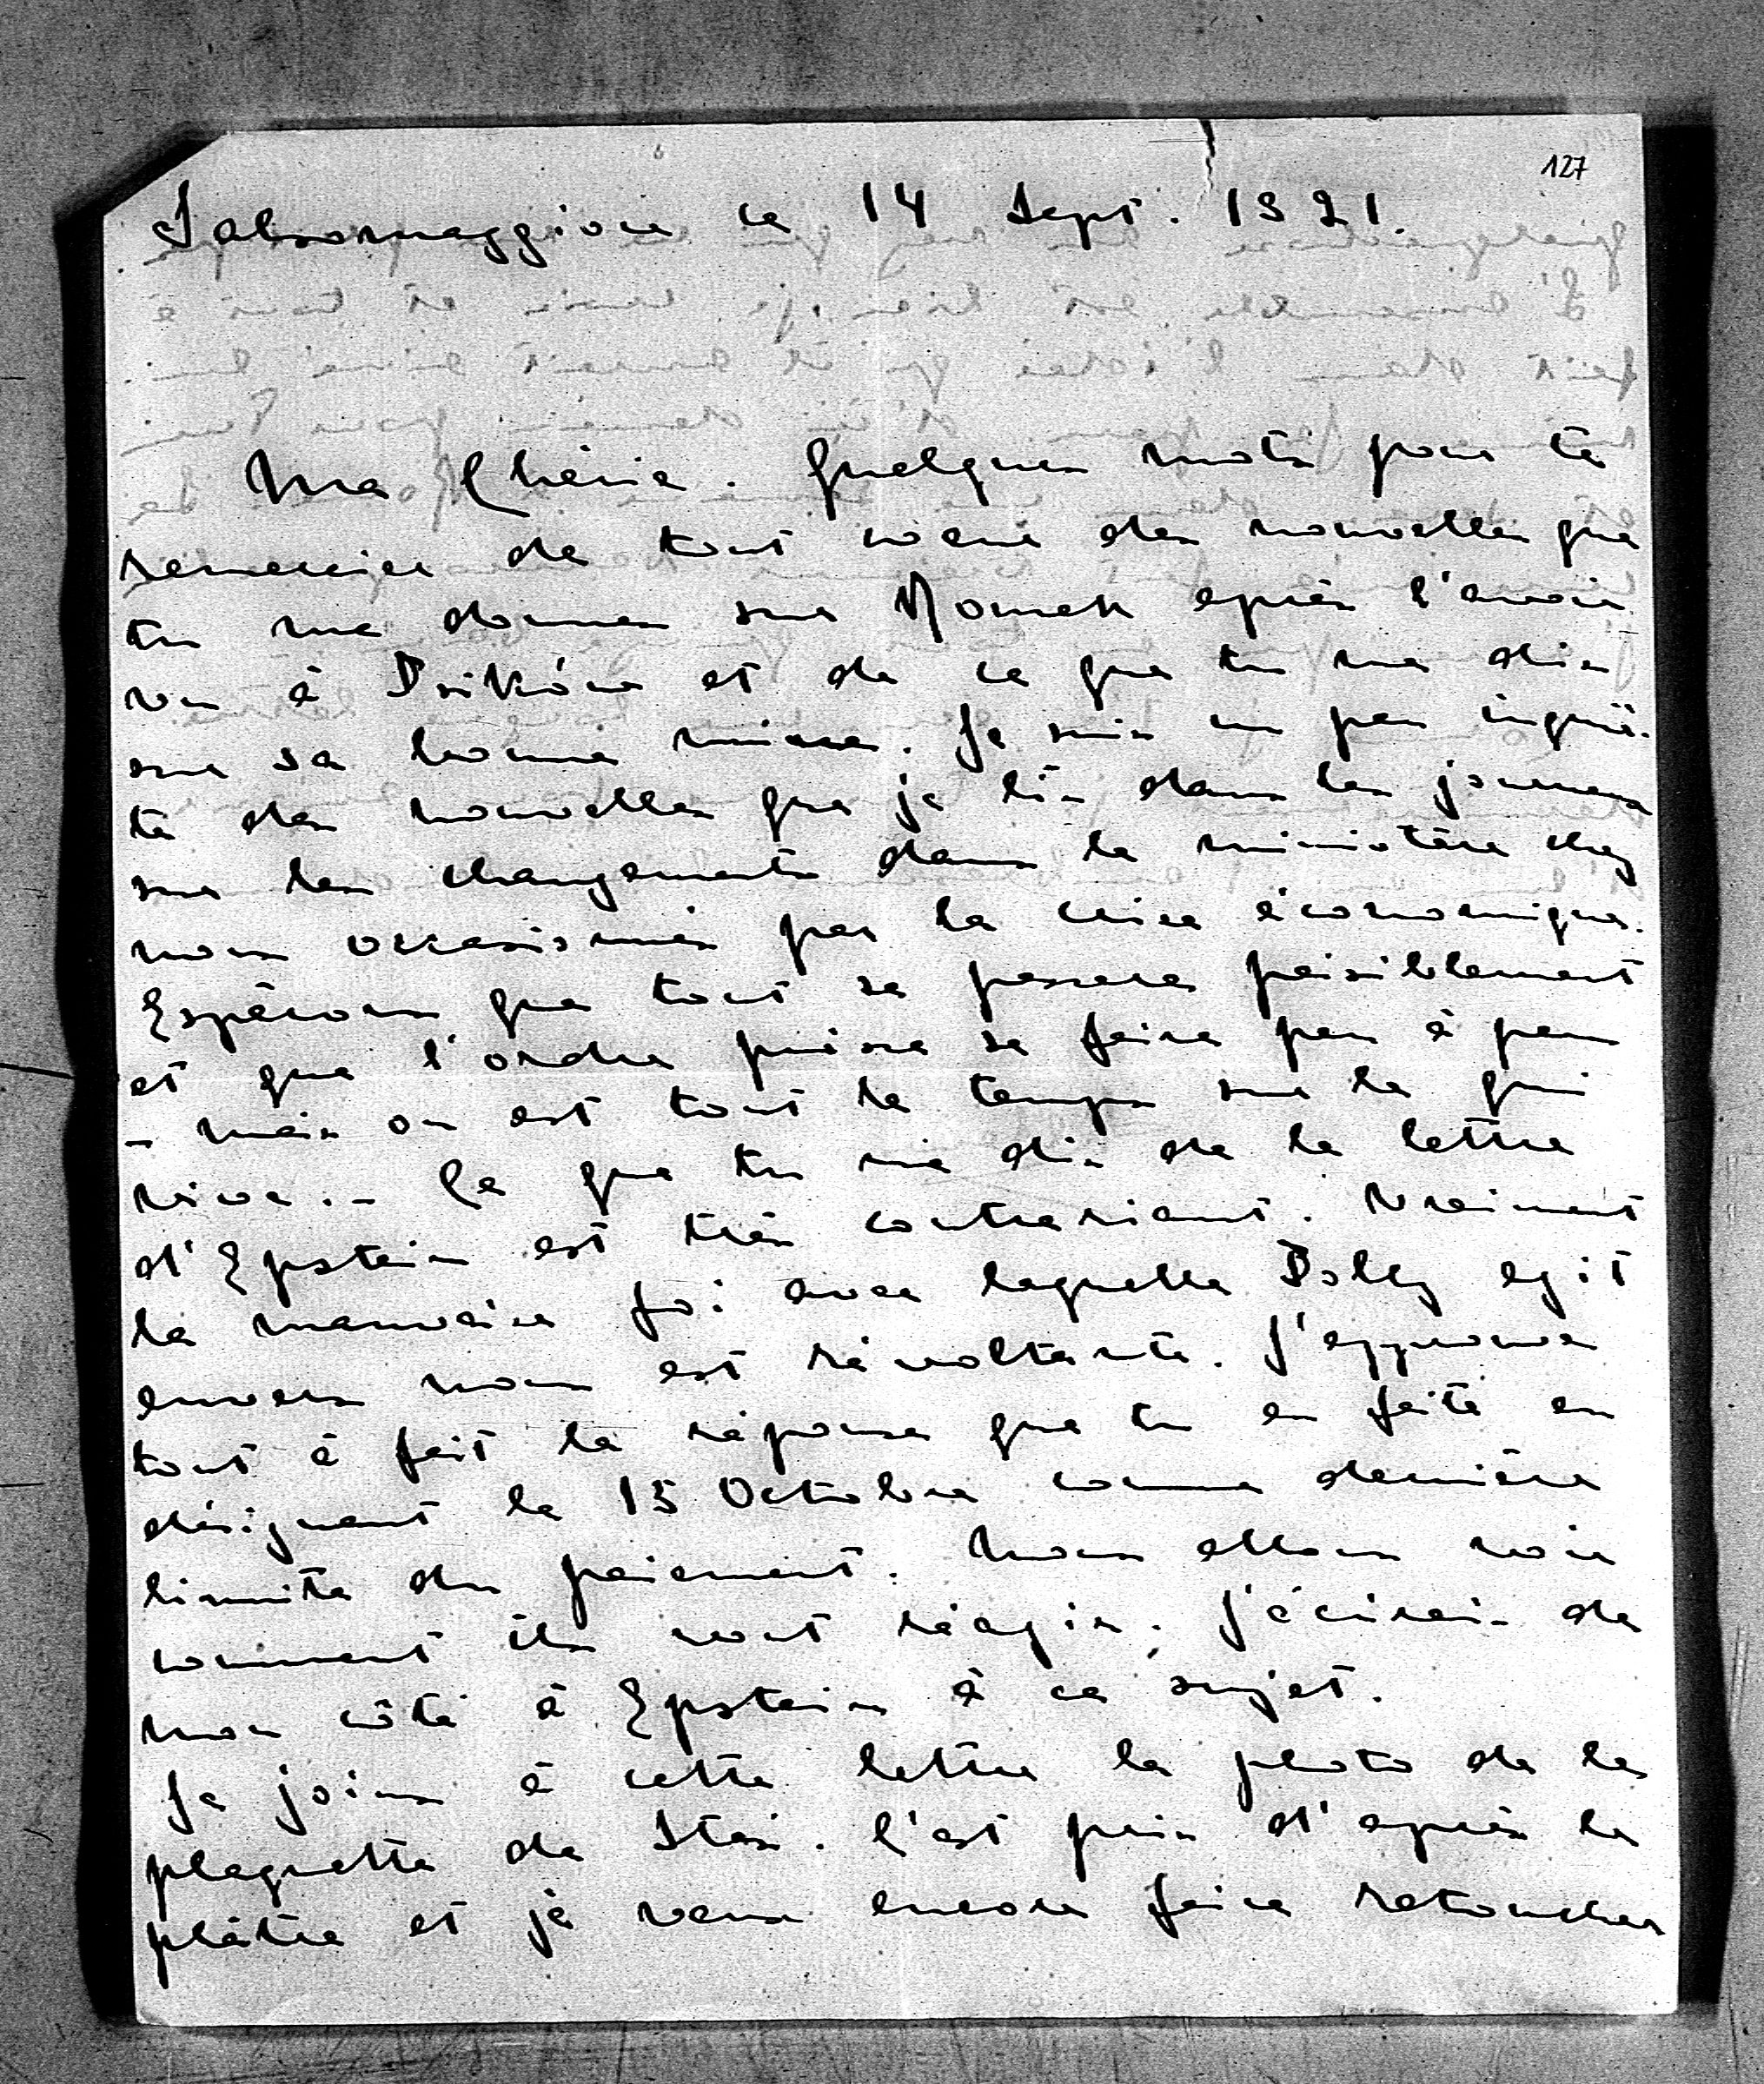 127
Salsomaggiore ce 14 Sept. 1921.
Ma Chérie. Quelques mots pour te
remercier de tout coeur des nouvelles que
tu me donnes sur Romek après l'avoir
vu à Dzików et de ce que tu me dis
sur sa bonne mine. Je suis un peu inquié-
té des nouvelles que je lis dans les journaux
sur les changements dans le ministère chez
nous occasionnés par la crise économique.
Espérons que tout se passera paisiblement
et que l'ordre puisse se faire peu à peu
– mais on est tout le temps sur le qui
vive. – Ce que tu me dis de la lettre
d'Epstein est très contrariant. Vraiment
la mauvaise foi avec laquelle Dolly agit
envers nous est révoltante. J'approuve
tout à fait la réponse que tu as faite en
désignant le 15 Octobre comme dernière
limite du paiement. Nous allons voir
comment ils vont réagir. J'écrirai de
mon côté à Epstein à ce sujet.
Je joins à cette lettre la photo de la
plaquette de Staś. C'est pris d'après le
plâtre et je veux encore faire retoucher